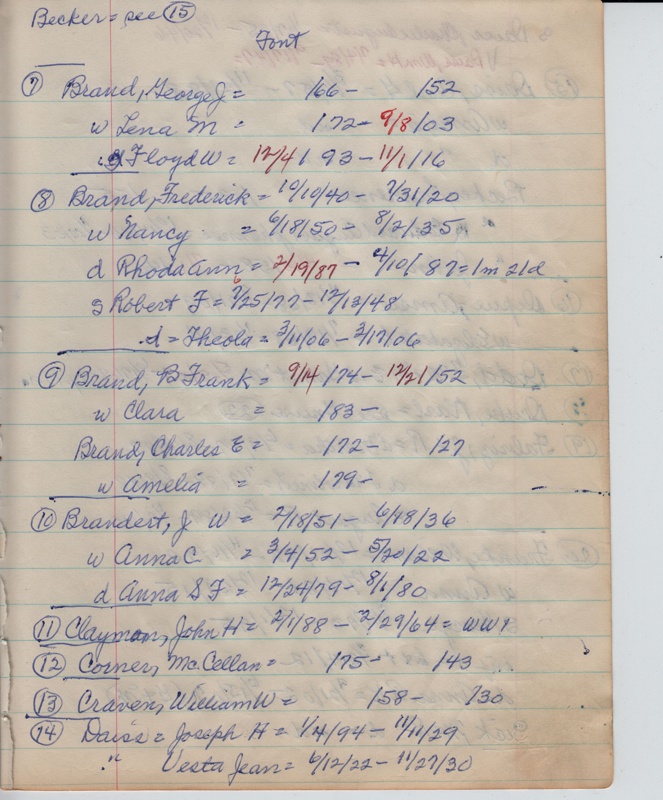 Becker = see 15
Font
7 Brand, George J = /66 - /52
w Lena M = /72 - 9/8/03
Floyd W = 12/4/93 - 11/1/16
8 Brand, Frederick = 10/10/40 - 7/31/20
w Nancy = 6/18/50 = 8/2/35
d Rhoda Ann = 2/19/87 - 4/10/87 = 1m 21d
s Robert F = /25/77 - 12/13/48
d = Theola = 3/11/06 - 3/17/06
9 Brand, B Frank = 9/14/74 - 12/21/52
w Clara = /83 -
Brand, Charles E = /72 - /27
w Amelia = /79 -
10 Brandert, J W = 2/18/51 - 6/18/36
w Anna C = 3/4/52 - 5/20/22
d Anna S F = 12/24/79 - 8/1/80
11 Clayman, John H = 2/1/88 - 2/29/64 = WW1
12 Corner, McCellan = /75 - /43
13 Craven, William W = /58 - /30
14 Daiss = Joseph H = 1/4/94 - 11/11/29
" Vesta Jean = 6/12/22 - 11/27/30